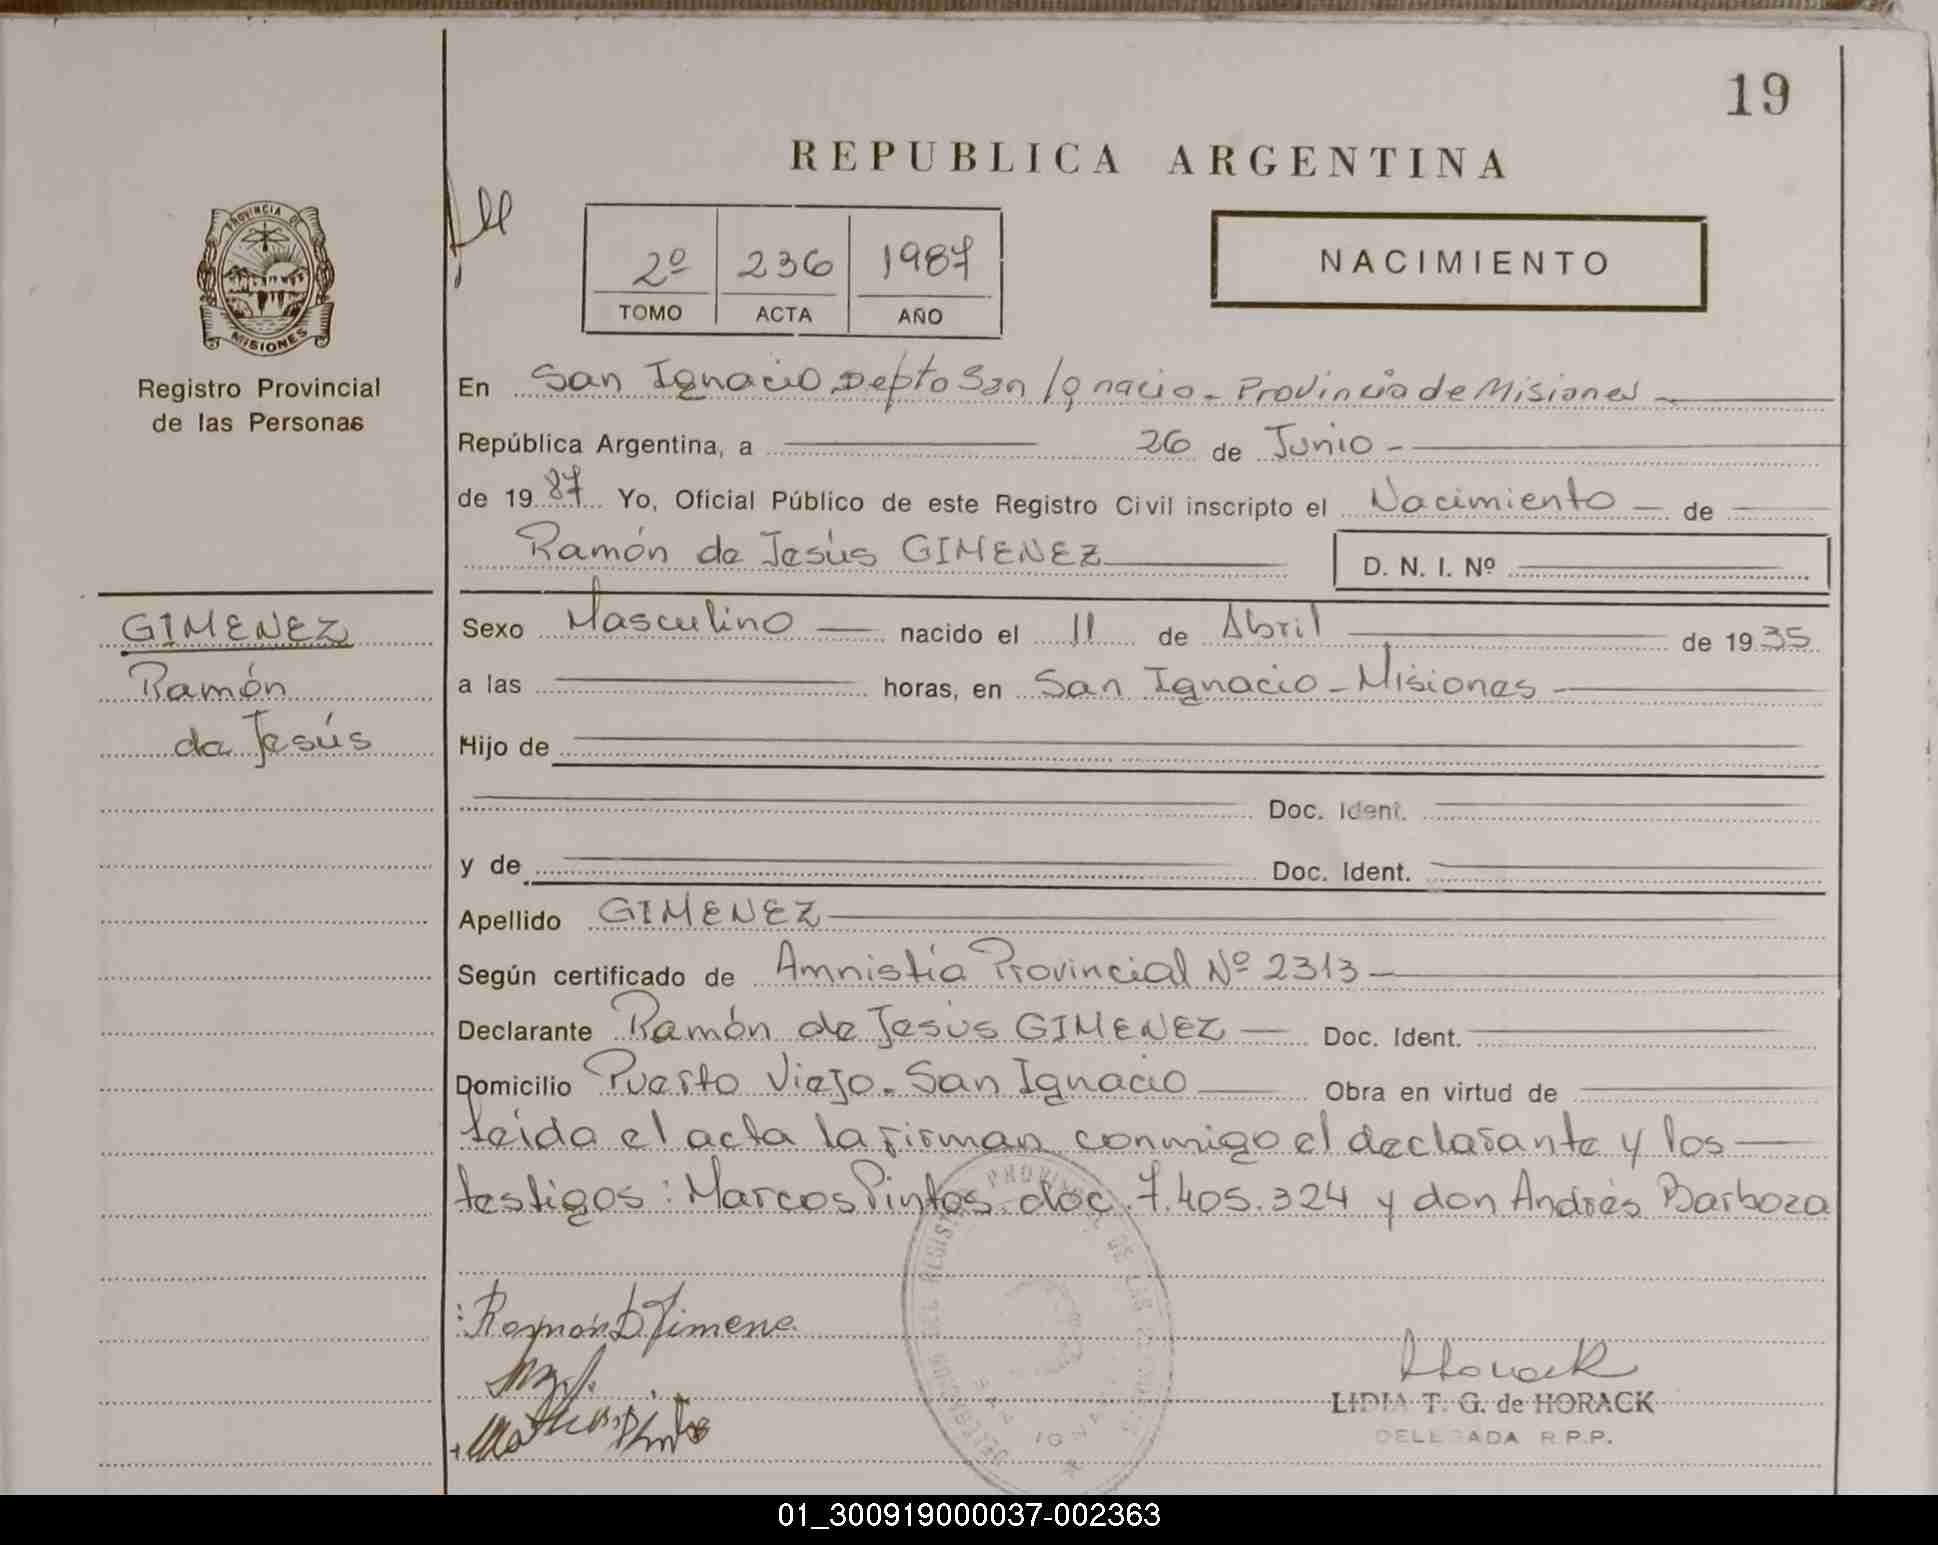 19
REPUBLICA ARGENTINA
PROVINCIA DE
MISIONES
Registro Provincial
de las Personas
2º 236 1987
TOMO ACTA AÑO
NACIMIENTO
En San Ignacio Depto San Ignacio - Provincia de Misiones
República Argentina, a 26 de Junio -
de 1987 Yo, Oficial Público de este Registro Civil inscripto el Nacimiento de
Ramón de Jesús GIMENEZ D. N. I. Nº
GIMENEZ
Ramón
de Jesús
Sexo Masculino nacido el 11 de Abril de 1935
a las horas, en San Ignacio - Misiones
Hijo de
Doc. Ident.
y de Doc. Ident.
Apellido GIMENEZ
Según certificado de Amnistía Provincial Nº 2313
Declarante Ramón de Jesús GIMENEZ Doc. Ident.
Domicilio Puerto Viejo - San Ignacio Obra en virtud de
Leída el acta la firman conmigo el declarante y los
testigos: Marcos Pintos doc. 7.405.324 y don Andrés Barboza
Ramón D Jimene
Horack
LIDIA T. G. de HORACK
DELEGADA R.P.P.
01_300919000037-002363